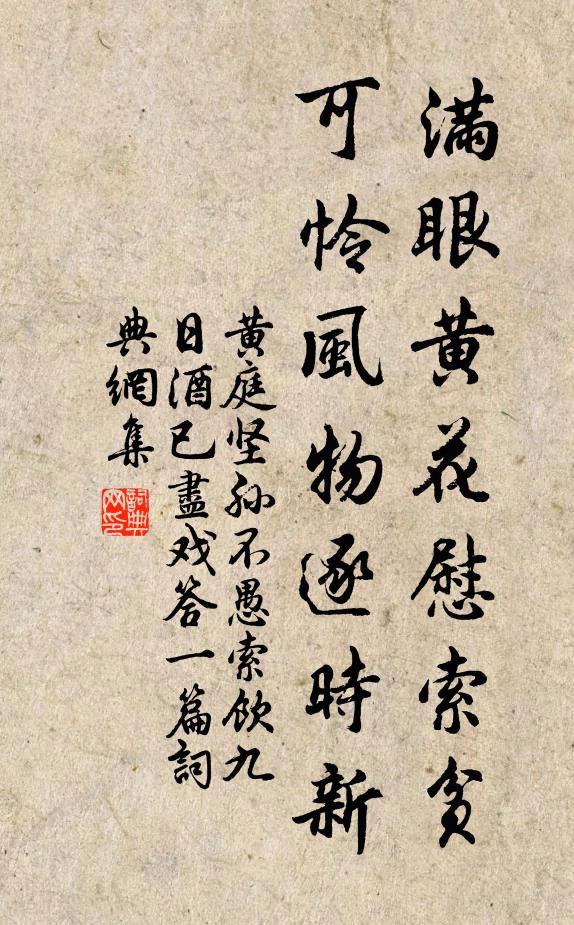 滿眼黄花慰索貧
可怜風物逐時新
黄庭坚孙不愚索飲九
日酒已盡戏答一篇詞
典網集
詞典网印